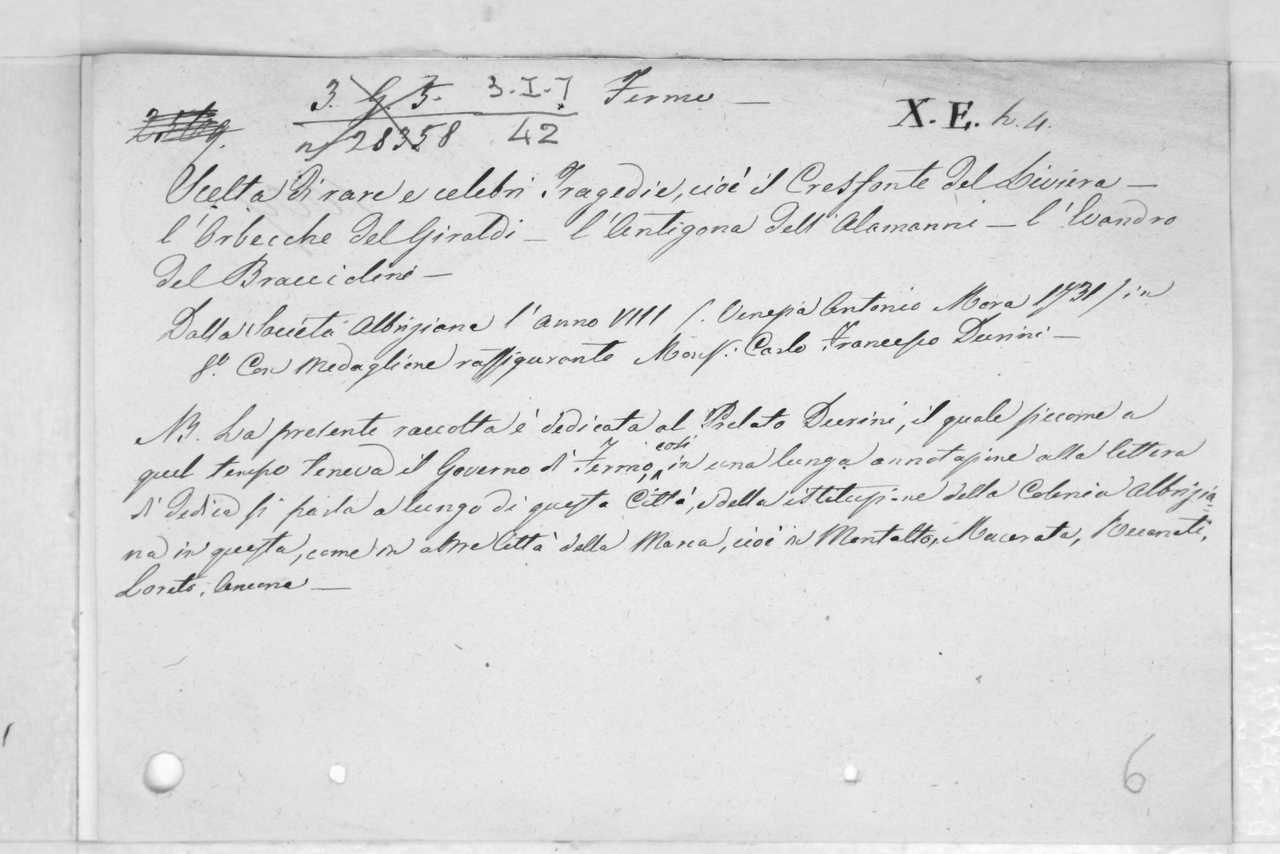 3. G. 5. 3.I.7 Fermo —
n/ 28358 42 X. E. h. 4.
Scelta di rare e celebri Tragedie, cioè il Cresfonte del Liviera —
l'Orbecche del Giraldi — l'Antigona dell'Alamanni — l'Evandro
del Bracciolini —
Dalla Società Albriziana l'anno VIIII (. Venezia Antonio Mora 1731) in
8.º Con medaglione raffigurante Mons.r Carlo Francesco Durini —
NB. La presente raccolta è dedicata al Prelato Durini, il quale siccome a
quel tempo teneva il Governo di Fermo, così in una lunga annotazione alla lettera
di dedica si parla a lungo di questa Città, e della istituzione della Colonia Albrizia=
na in questa, come in altre Città della Marca, cioè in Montalto, Macerata, Recanati,
Loreto, Ancona —
6